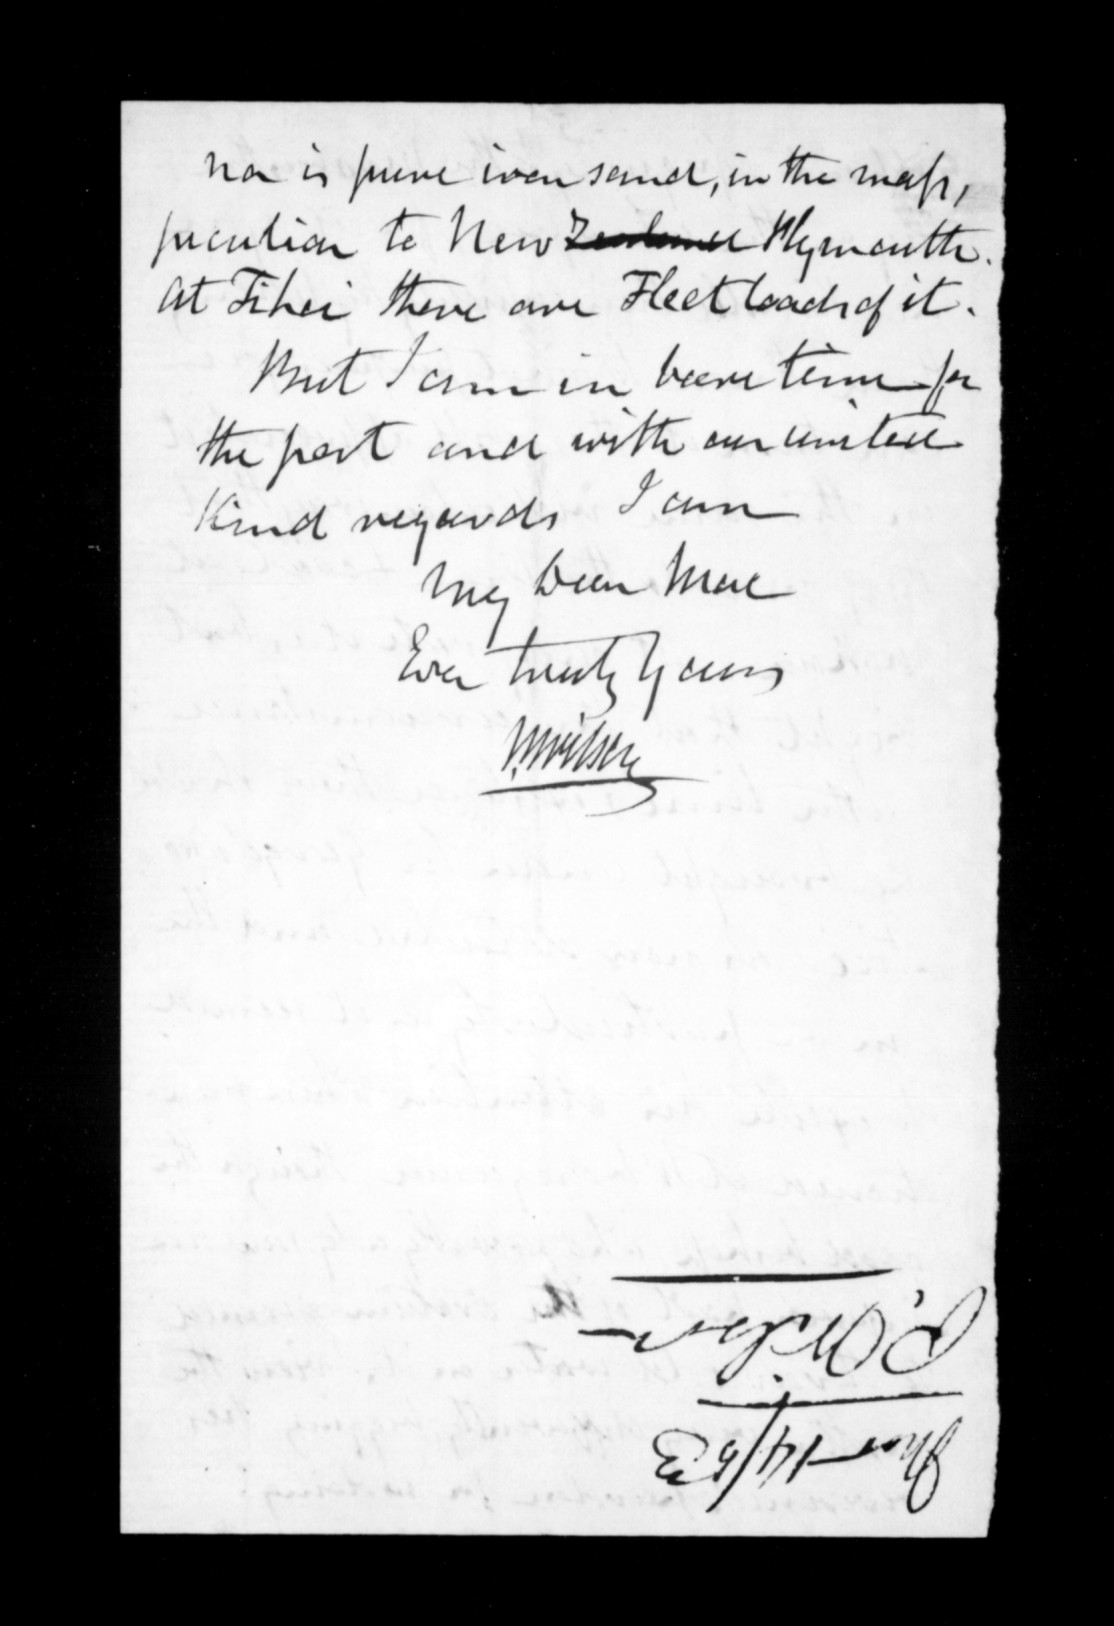 nor is pure iron sand, in the mass,
peculiar to New Zealand Plymouth.
At Fihei there are Fleet loads of it.
But I am in bare time for
the post and with our united
Kind regards I am
My Dear Mac
Ever truly Yours
P. Wilson
P. Wilson
14/53